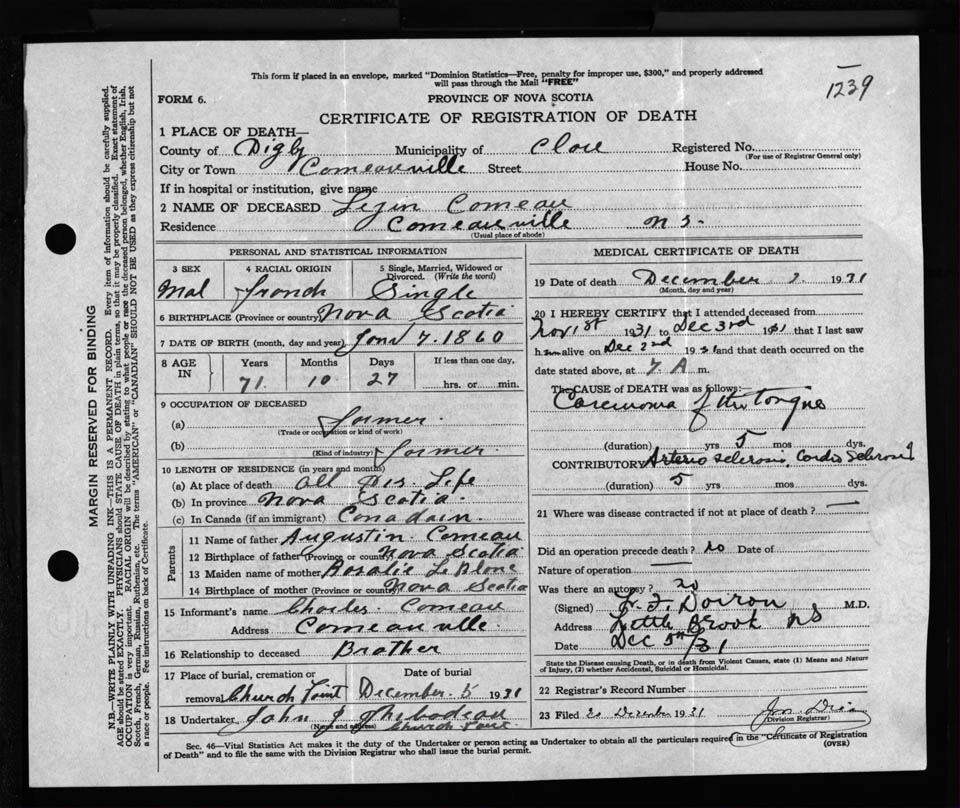 This form if placed in an envelope, marked "Dominion Statistics—Free, penalty for improper use, $300," and properly addressed
will pass through the Mail "FREE"
1239
FORM 6.
PROVINCE OF NOVA SCOTIA
CERTIFICATE OF REGISTRATION OF DEATH
1 PLACE OF DEATH—
County of Digby Municipality of Clare Registered No.
(For use of Registrar General only)
City or Town Comeauville Street House No.
If in hospital or institution, give name
2 NAME OF DECEASED Comeau
Residence Comeauville N S.
(Usual place of abode)
PERSONAL AND STATISTICAL INFORMATION
3 SEX 4 RACIAL ORIGIN 5 Single, Married, Widowed or Divorced. (Write the word)
Mal french Single
6 BIRTHPLACE (Province or country) Nova Scotia
7 DATE OF BIRTH (month, day and year) 7. 1860
8 AGE IN Years Months Days If less than one day,
71 10 27 hrs. or min.
9 OCCUPATION OF DECEASED
(a) farmer
(Trade or occupation or kind of work)
(b) farmer
(Kind of industry)
10 LENGTH OF RESIDENCE (in years and months)
(a) At place of death all His Life
(b) In province Nova Scotia
(c) In Canada (if an immigrant) Canadain
Parents
11 Name of father Augustin Comeau
12 Birthplace of father (Province or country) Nova Scotia
13 Maiden name of mother Rosalie Le Blanc
14 Birthplace of mother (Province or country) Nova Scotia
15 Informant's name Charles Comeau
Address Comeauville
16 Relationship to deceased Brother
17 Place of burial, cremation or removal Church Point Date of burial December 5 1931
18 Undertaker John Thibodeau
(Name and address) Church Point
MEDICAL CERTIFICATE OF DEATH
19 Date of death December 1931
(Month, day and year)
20 I HEREBY CERTIFY that I attended deceased from
Nov 1st 1931 to Dec 3rd 1931 that I last saw
him alive on Dec 2nd 1931 and that death occurred on the
date stated above, at 7 A m.
The CAUSE OF DEATH was as follows:—
Carcinoma of the tongue
(duration) yrs 5 mos dys.
CONTRIBUTORY Arterio sclerosis, Cardio Sclerosis
(duration) 5 yrs mos dys.
21 Where was disease contracted if not at place of death?
Did an operation precede death? no Date of
Nature of operation
Was there an autopsy? no
(Signed) Doiron M.D.
Address Little Brook NS
Date Dec 5th/31
State the Disease causing Death, or in death from Violent Causes, state (1) Means and Nature
of Injury, (2) whether Accidental, Suicidal or Homicidal.
22 Registrar's Record Number
23 Filed 20 December 1931
(Division Registrar)
Sec. 46—Vital Statistics Act makes it the duty of the Undertaker or person acting as Undertaker to obtain all the particulars required in the "Certificate of Registration
of Death" and to file the same with the Division Registrar who shall issue the burial permit.
(OVER)
MARGIN RESERVED FOR BINDING
N.B.—WRITE PLAINLY WITH UNFADING INK—THIS IS A PERMANENT RECORD. Every item of information should be carefully supplied.
AGE should be stated EXACTLY. PHYSICIANS should STATE CAUSE OF DEATH in plain terms, so that it may be properly classified. Exact statement of
OCCUPATION is very important. RACIAL ORIGIN will be described by stating to what people or race the deceased person belonged, whether English, Irish,
Scotch, French, German, Russian, Ruthenian, etc. The terms "AMERICAN" or "CANADIAN" SHOULD NOT BE USED as they express citizenship but not
a race or people. See instructions on back of Certificate.